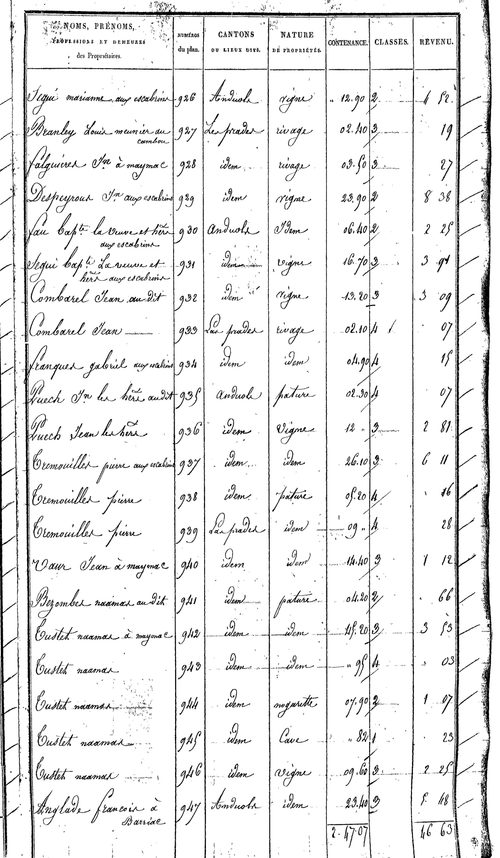 NOMS, PRÉNOMS, PROFESSIONS ET DEMEURES des Propriétaires. NUMÉROS du plan. CANTONS OU LIEUX DITS. NATURE DE PROPRIÉTÉS. CONTENANCE. CLASSES. REVENU.
Segui marianne aux escabrins 926 Anduols vigne " 12.90 2 4 52
Branley Louis meunier au cambou 927 Las prades rivage 02.40 3 19
falguieres Jn à maymac 928 idem rivage 03.50 3 27
Despeyrous Jn aux escabrins 929 idem vigne 23.90 2 8 38
fau Capte la veuve et hers aux escabrins 930 Anduols Idem 06.40 2 2 25
Segui Capte La veuve et hers aux escabrins 931 idem vigne 16.70 3 3 91
Combarel Jean au dit 932 idem vigne 13.20 3 3 09
Combarel Jean 933 Las prades rivage 02.10 4 07
franques gabriel aux escabrins 934 idem idem 04.90 4 15
Puech Jn les hers au dit 935 anduols pature 02.30 4 07
Puech Jean les hers 936 idem Vigne 12 " 3 2 81
Tremouilles pierre aux escabrins 937 idem idem 26.10 3 6 11
Tremouilles pierre 938 idem pature 05.20 4 16
Tremouilles pierre 939 Las prades idem 09 " 4 28
Vaur Jean à maymac 940 idem idem 14.40 3 1 12
Bezombes naamas au dit 941 idem pature 04.20 2 66
Custet naamas à maymac 942 idem idem 45.20 3 3 53
Custet naamas 943 idem idem " 95 4 03
Custet naamas 944 idem nogarette 07.90 2 1 07
Custet naamas 945 idem Cave " 82 1 23
Custet naamas 946 idem vigne 09.60 3 2 25
Anglade françois à Barriac 947 Anduols idem 23.40 3 5 48
2.47.07 46 63